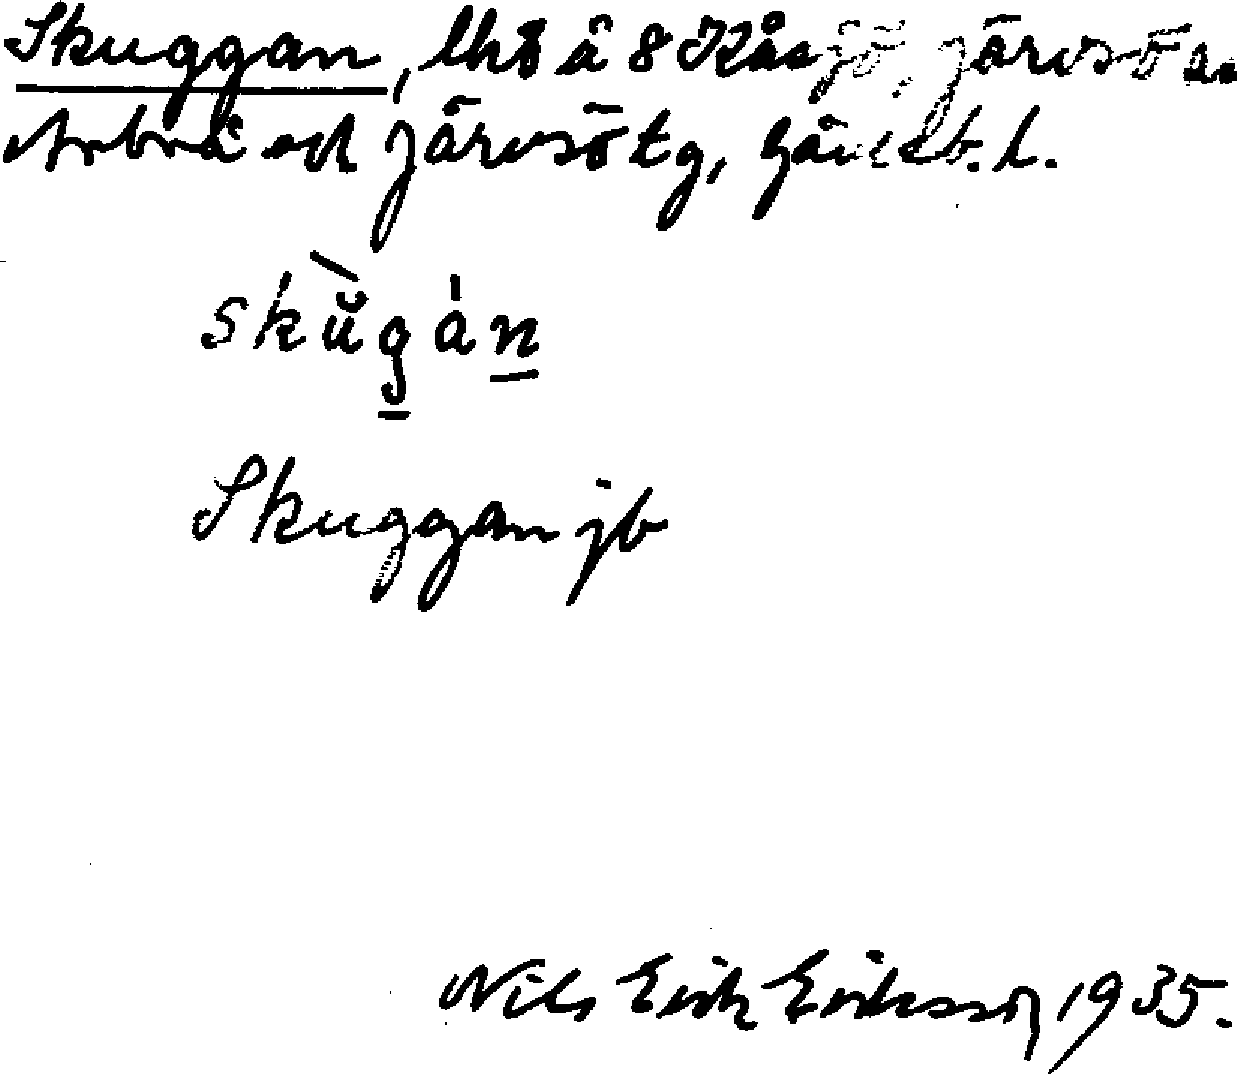 Skuggan, lhs å 8 Kåsjö, Järvsö sn
Arbrå och Järvsö tg, Gävleb. l.
skŭ̀gàn
Skuggan jb
Nils Erik Eriksson 1935.